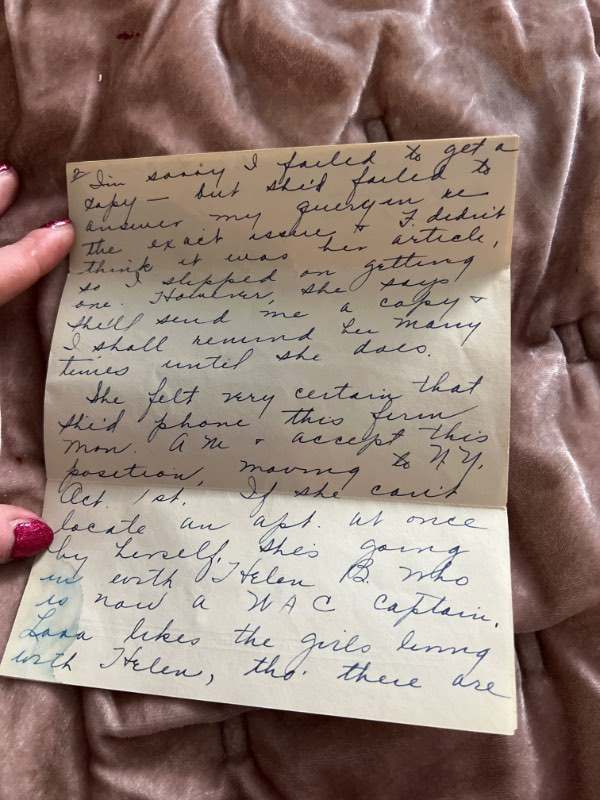 2
I'm sorry I failed to get a
copy — but she'd failed to
answer my query in re
the exact issue & I didn't
think it was her article,
so I slipped on getting
one. However, she says
she'll send me a copy &
I shall remind her many
times until she does.
She felt very certain that
she'd phone this firm
Mon. AM & accept this
position, moving to N.Y.
Oct. 1st. If she can't
locate an apt. at once
by herself, she's going
in with Helen B. who
is now a WAC Captain.
likes the girls living
with Helen, tho' there are